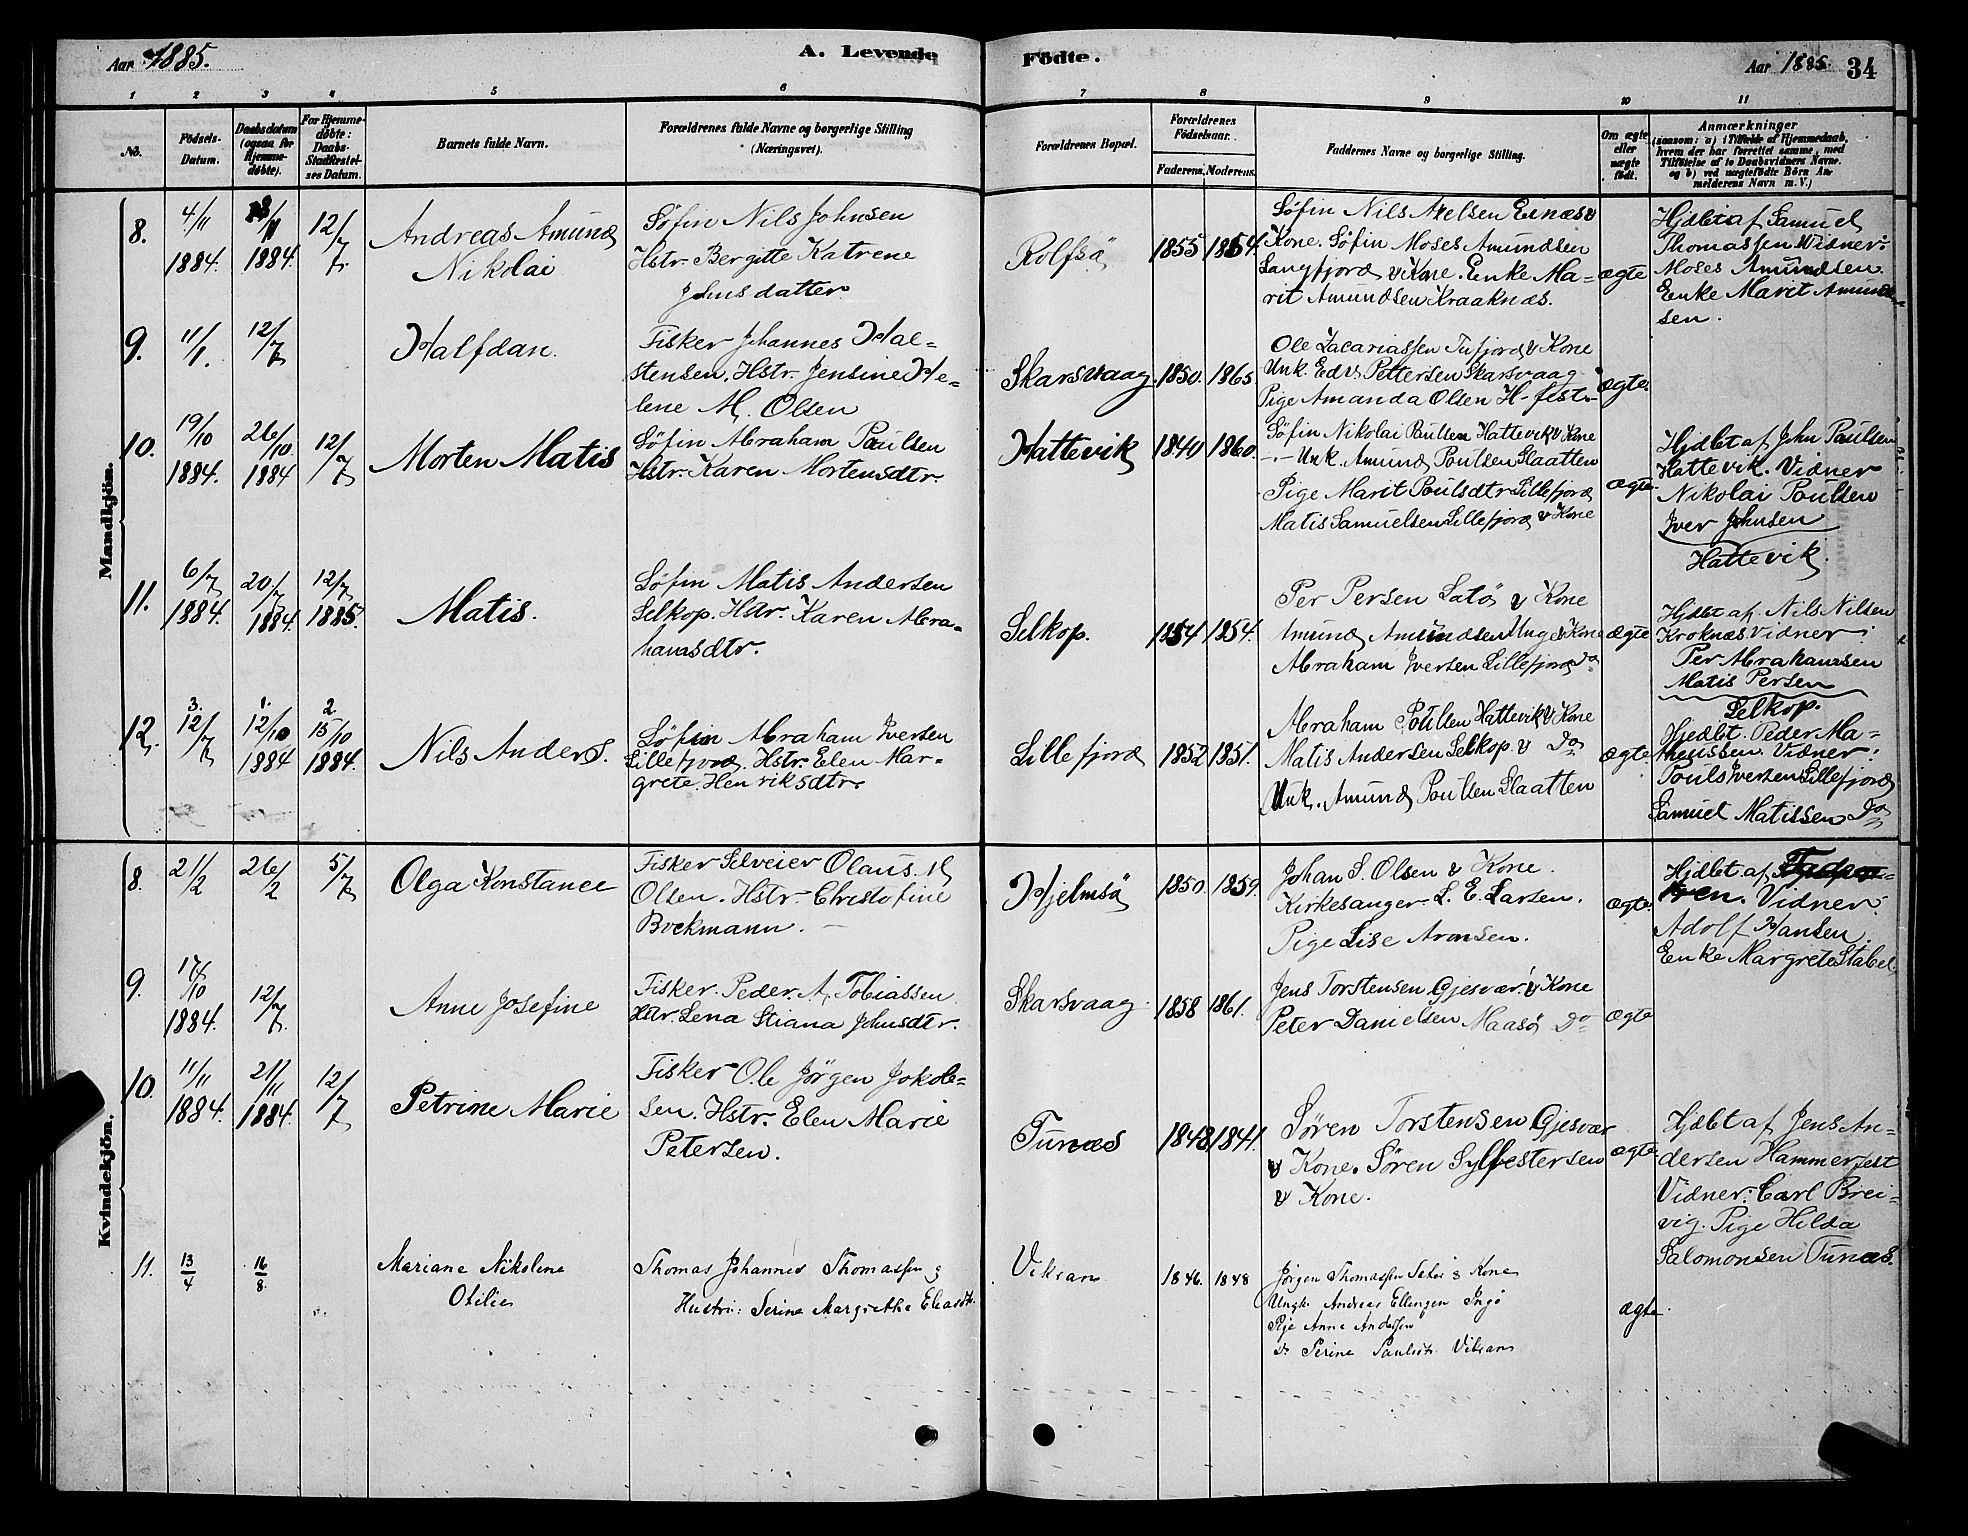 Aar 1885.
A. Levende
Födte.
Aar 1885.
34
1 2 3 4 5 6 7 8 9 10 11
No.
Födsels-
Datum.
Daabsdatum
(ogsaa for
Hjemme-
döbte).
For Hjemme-
döbte:
Daabs-
Stadfæstel-
ses Datum.
Barnets fulde Navn.
Forældrenes fulde Navne og borgerlige Stilling
(Næringsvei).
Forældrenes Bopæl.
Forældrenes
Födselsaar.
Faderens. Moderens.
Faddernes Navne og borgerlige Stilling.
Om ægte
eller
uægte
födt.
Anmærkninger
(saasom: a) i Tilfælde af Hjemmedaab,
hvem der har forrettet samme, med
Tilföielse af to Daabsvidners Navne.
og b) ved uægtefödte Börn An-
melderens Navn m. V.)
Mandkjön.
8.
4/11
1884.
1884.
12/7
Andreas Amund
Nikolai
Söfin Nils Johnsen
Hstr. Bergitte Katrene
Johnsdatter
Rolfsö
1855 1854.
Söfin Nils Axelsen Einæs &
Kone. Söfin Moses Amundsen
Langfjord & Kone. Enke Ma-
rit Amundsen Kraaknæs.
ægte
Hjdbt af Samuel
Thomassen Widner:
Moses Amundsen
Enke Marit Amund-
sen.
9.
11/1.
12/7
Halfdan.
Fisker Johannes Hal-
stensen. Hstr. Jensine He-
lene M. Olsen
Skarsvaag
1850. 1865.
Ole Zacariassen Tufjord & Kone
Unk. Edv. Pettersen Skarsvaag
Pige Amanda Olsen H-fest.
ægte.
10.
19/10
1884.
26/10
1884
12/7
Morten Matis
Söfin Abraham Paulsen
Hstr. Karen Mortensdtr.
Hattevik
1840 1860.
Söfin Nikolai Paulsen Hattevik & Kone
-.- Unk. Amund Poulsen Slaatten
Pige Marit Poulsdtr Lillefjord
Matis Samuelsen Lillefjord & Kone
ægte.
Hjdbt af John Paulsen
Hattevik. Vidner
Nikolai Poulsen
Iver Johnsen
Hattevik.
11.
6/7
1884.
20/7
1884.
12/7
1885.
Matis.
Söfin Matis Andersen
Selkop. Hstr. Karen Abra-
hamsdtr.
Selkop.
1854 1854.
Per Persen Latö & Kone
Amund Amundsen Unge & Kone
Abraham Iversen Lillefjord Do
ægte
Hjdbt af Nils Nilsen
Kroknæs Vidner:
Per Abrahamsen
Matis Persen
Selkop.
12.
3. 1. 2.
12/7
12/10
1884
15/10
1884.
Nils Anders.
Söfin Abraham Iversen
Lillefjord. Hstr. Elen Mar-
grete Henriksdtr.
Lillefjord
1852 1851.
Abraham Poulsen Hattevik & Kone
Matis Andersen Selkop & Do
Unk. Amund Poulsen Slaatten
ægte
Hjedbt. Peder Ma-
theussen. Vidner:
Pouls Iversen Lillefjord
Samuel Matissen Do
Kvindekjön.
8.
21/2
26/2
5/7
Olga Konstance
Fisker Selveier Olaus M
Olsen. Hstr. Christofine
Brekmann.
Hjelmsö
1850. 1859.
Johan S. Olsen & Kone.
Kirkesanger L. E. Larsen.
Pige Lise Aronsen.
ægte.
Hjdbt af
Vidner:
Adolf Hansen
Enke Margrete Stabel
9.
17/10
1884.
12/7
Anne Josefine
Fisker Peder A. Tobiassen
Hstr. Lena Stiana Johnsdtr.
Skarsvaag
1858 1861.
Jens Torstensen Gjesvær. & Kone
Peter Danielsen Maasö Do
ægte
10.
11/11
1884.
21/11
1884.
12/7
Petrine Marie
Fisker Ole Jörgen Jokob-
sen. Hstr. Elen Marie
Petersen.
Tunæs
1848 1841.
Sören Torstensen Gjesvær
& Kone. Sören Sylfestersen
& Kone.
ægte.
Hjdbt af Jens An-
dersen Hammerfest
Vidner: Carl Brei-
vig. Pige Hilda
Salomonsen Tunæs.
11.
13/4
16/8
Mariane Nikolene
Otilie
Thomas Johannes Thomassen &
Hustru: Serine Margrethe Eliasdtr.
Viksan
1846. 1848
Jörgen Thomassen & Kone
Ungk. Andreas Ellingsen Ingö
Pige Anne Andersen
Do Serine Paulsdtr Viksan
ægte.